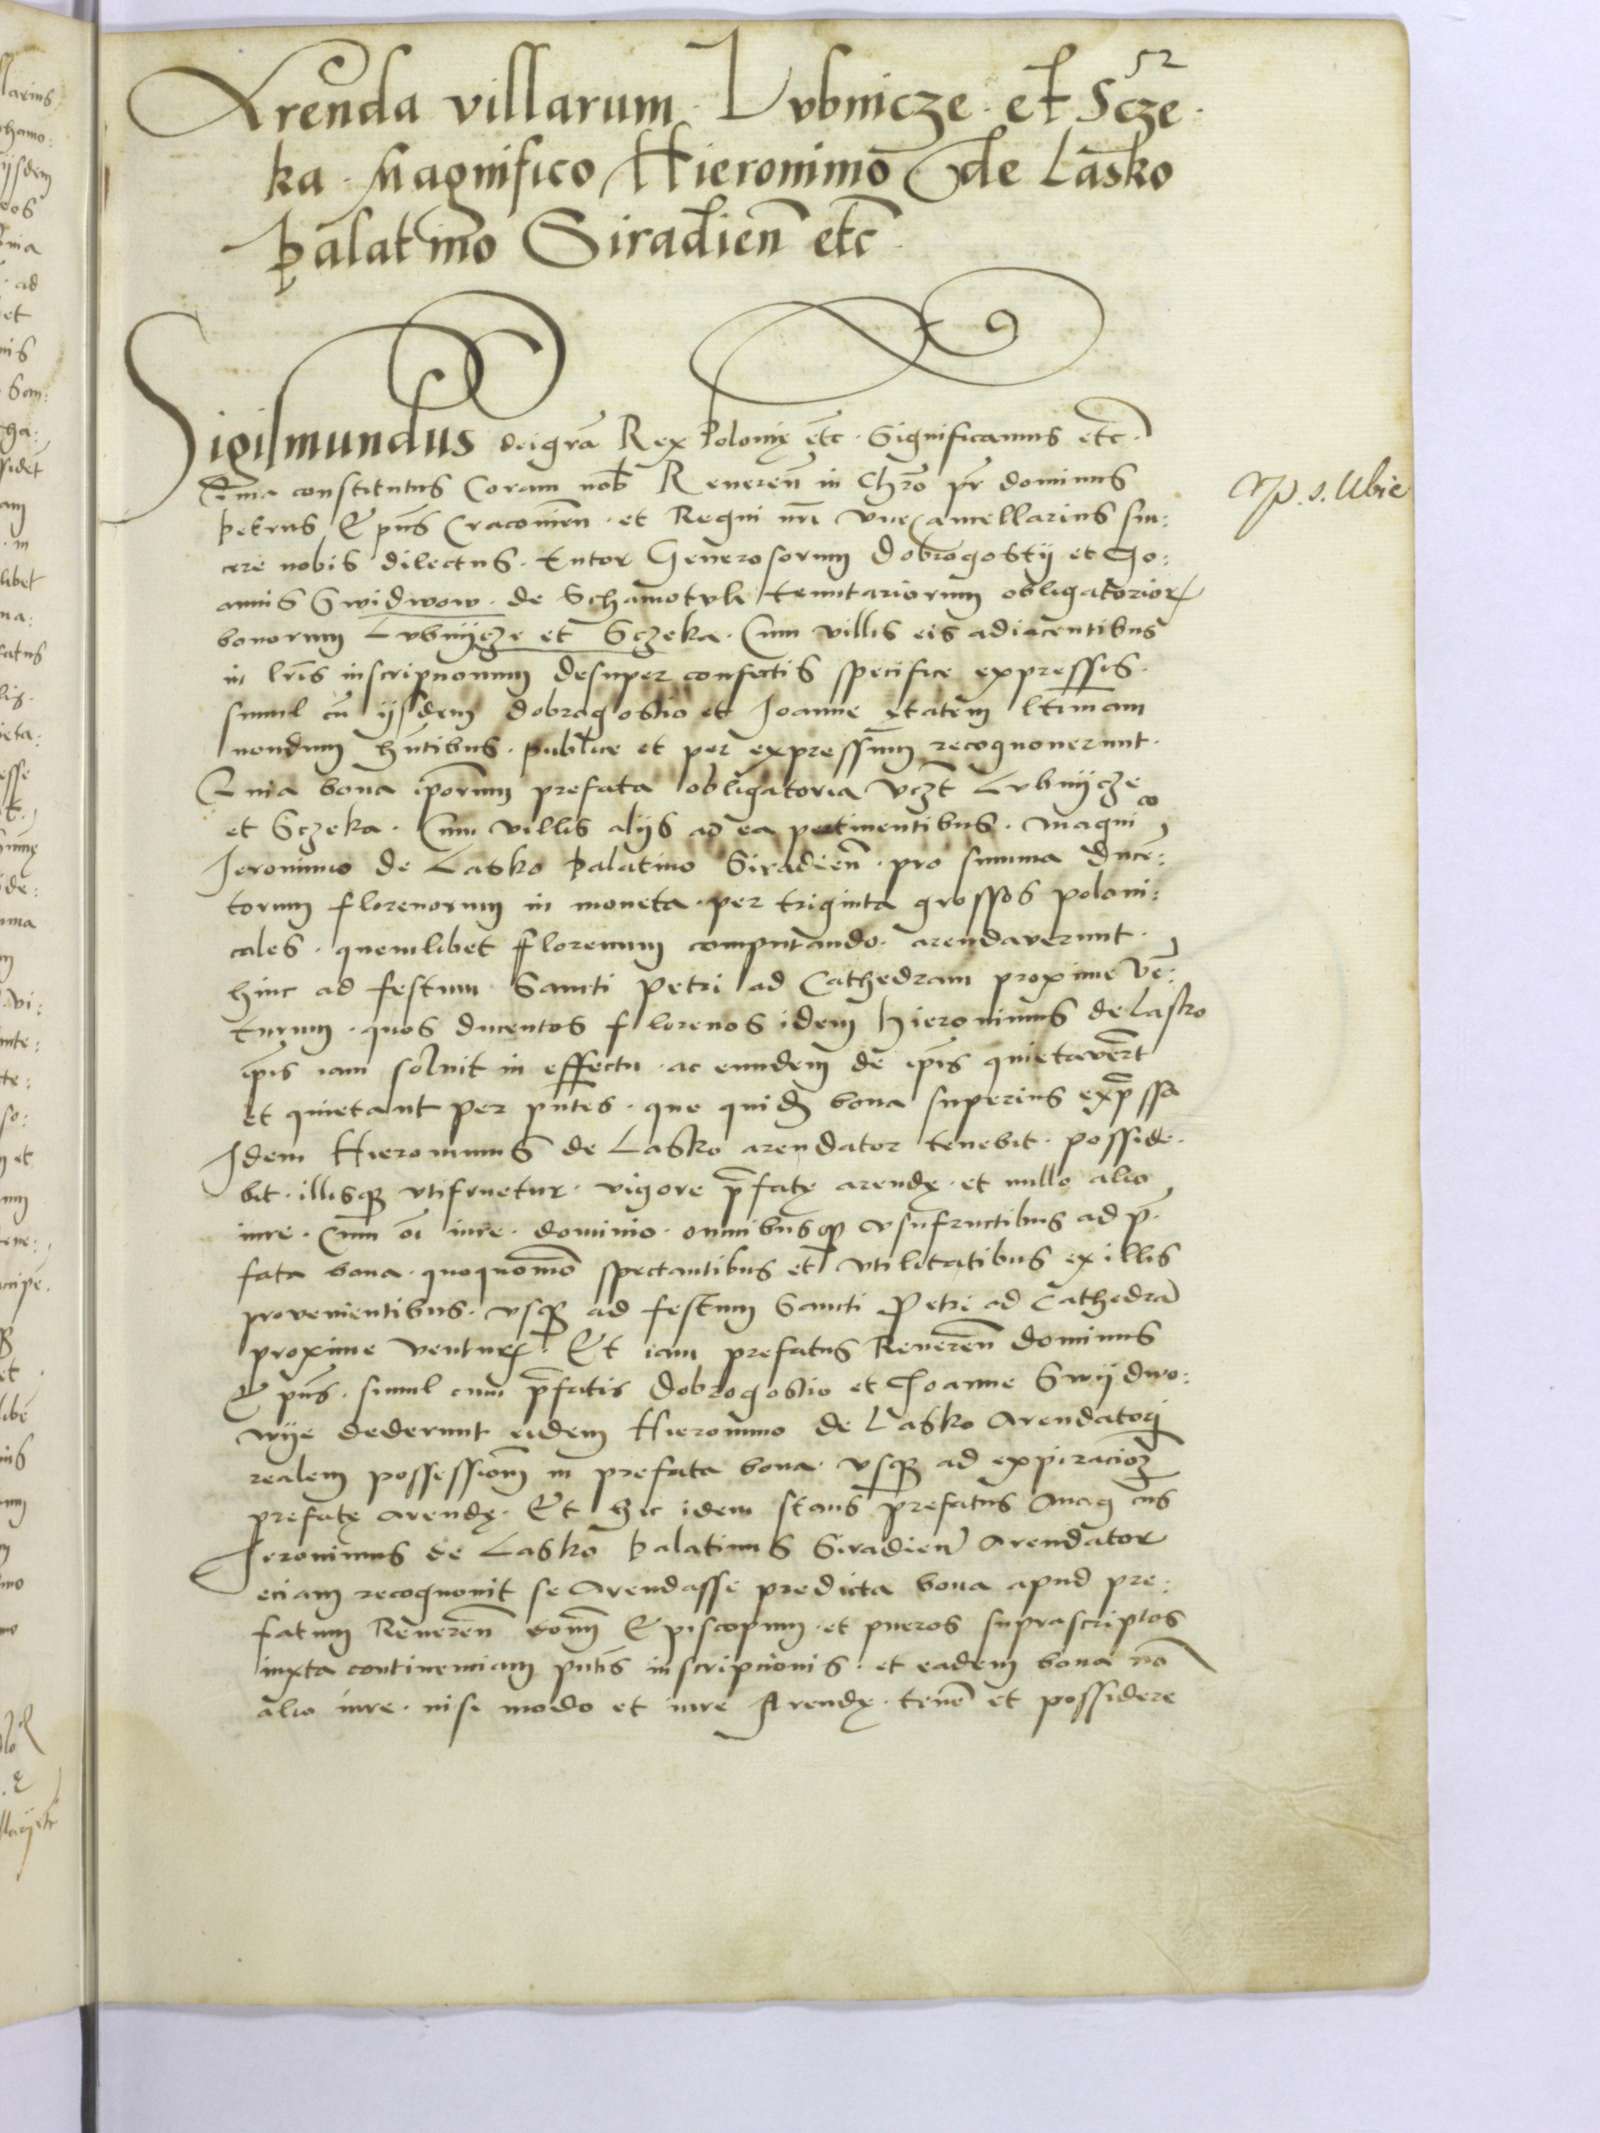 52
Arenda villarum Lubnicze et Scze
ka Magnifico Hieronimo de Lasko
Palatino Siradien̄ etc̄
Sigismundus dei grā Rex Polonię etc̄. Significamus etc̄.
constitutus Coram nob̄ Reveren̄ in Chrō pr̄ dominus
Petrus Ep̄us Cracovien̄. et Regni nr̄i vicecancellarius sin:
cere nobis dilectus. tutor Generosorum Dobrogostij et Jo:
annis Swidwow de Schamotuli tenutariorum obligatorior
bonorum Lubnijcze et Sczeka. Cum villis eis adiacentibus
in lr̄is inscripnonum desuper confectis specifice expressis.
simul cū ijsdem Dobrogostio et Joanne ętatem ltimam
nondum hn̄tibus. publice et per expressum recognoverunt.
Quia bona ip̄orum prefata obligatoria vcz̄t Lubnijcze
et Sczeka. Cum villis alijs ad ea pertinentibus. Magnico
Jeronimo de Lasko Palatino Siradien̄. pro summa ducen:
torum florenorum in moneta per triginta grossos poloni:
cales. quemlibet florenum computando. arendaverunt.
hinc ad festum Sancti Petri ad Cathedram proxime ven̄:
turum. quos ducentos florenos idem Hieronimus de Lasko
ip̄is iam solvit in effectu. ac eundem de ip̄is quietaver̄t
et quietant per pn̄tes. que quid bona superius exp̄ssa
Idem Hieronimus de Lasko arendator tenebit. posside.
bit. illisq utifruetur. vigore p̄fatę arendę. et nullo alio
iure. Cum oī iure. dominio. omnibusq usufructibus ad p̄.
fata bona quoquomō spectantibus et utilitatibus ex illis
provenientibus. usq ad festum Sancti Petri ad Cathedrā
proxime ventur. Et iam prefatus Reveren̄ dominus
Ep̄us. simul cum p̄fatis Dobrogostio et Joanne Swijdwo:
wije dederunt eidem Hieronimo de Lasko Arendatori
realem possessionē in prefata bona. usq ad expiracioz
prefatę arendę. Et hic idem stans prefatus Magcus
Jeronimus de Lasko Palatinus Siradien̄ Arendator
eciam recognovit se Arendasse predicta bona apud pre:
fatum Reveren̄ dom̄ Episcopum. et pueros suprascriptos
iuxta continenciam pn̄tis inscripcionis. et eadem bona nō
alio iure. nisi modo et iure Arendę. tenē et possidere